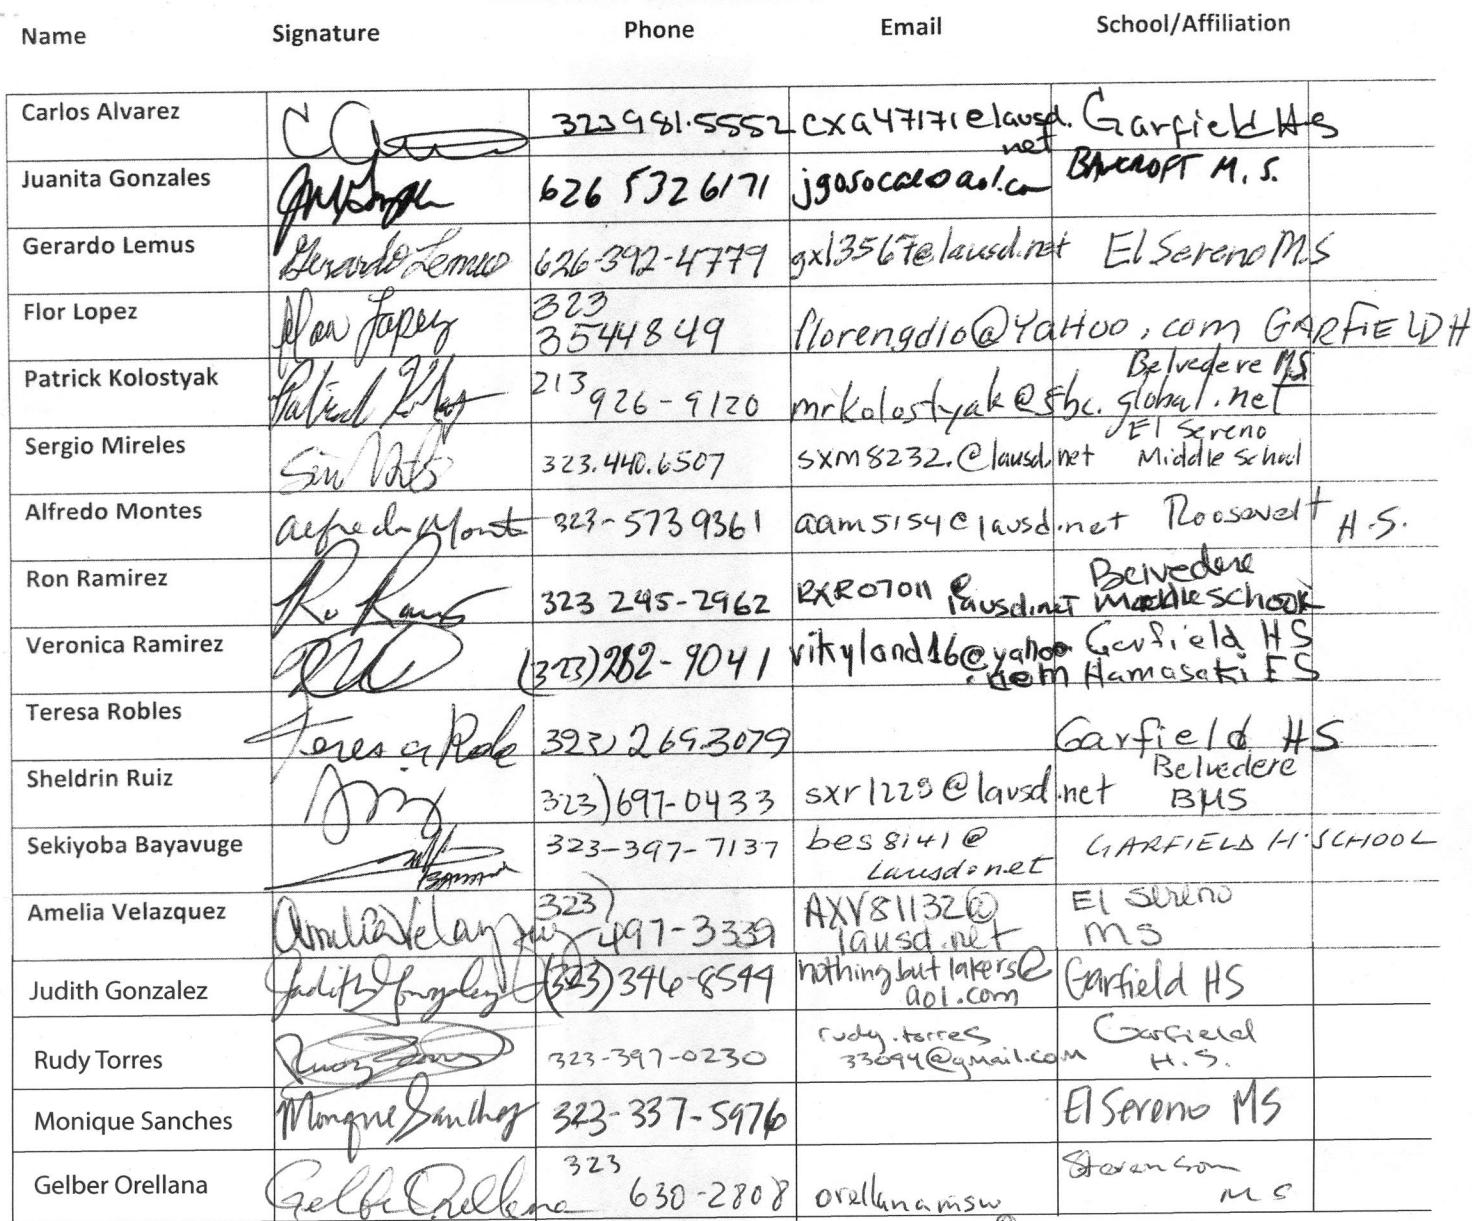 Name Signature Phone Email School/Affiliation
Carlos Alvarez 323 981.5552 cxa47171@lausd. Garfield HS
net
Juanita Gonzales 626 532 6171 BANCROFT M.S.
Gerardo Lemus Gerardo Lemus 626-392-4779 gxl3567@lausd.net El Sereno M.S
Flor Lopez Flor Lopez 323
3544849 florengdio@YAHoo.com GARFIELD H
Patrick Kolostyak 213 Belvedere MS
926-9120 mrkolostyak@sbc.global.net
Sergio Mireles 323.440.6507 sxm8232.@lausd.net El Sereno
Middle School
Alfredo Montes Alfredo Mont 323-573 9361 aam5154@lausd.net Roosevelt H.S.
Ron Ramirez 323 245-2962 RXR07011@ Belvedere
lausd.net Middle School
Veronica Ramirez (323)282-9041 vikyland16@yahoo Garfield HS
.com Hamasaki ES
Teresa Robles Teresa Roble 323) 269.3079 Garfield HS
Sheldrin Ruiz 323)697-0433 sxr1229@lausd.net Belvedere
BMS
Sekiyoba Bayavuge 323-397-7137 bes8141@ GARFIELD H SCHOOL
lausd.net
Amelia Velazquez Amelia Velazquez 323) AXV81132@ El Sereno
497-3339 lausd.net MS
Judith Gonzalez Judith Gonzalez (323)346-8544 nothingbutlakers@ Garfield HS
aol.com
Rudy Torres 323-397-0230 rudy.torres Garfield
33094@gmail.com H.S.
Monique Sanches Monique Sanchez 323-337-5976 El Sereno MS
Gelber Orellana Gelber Orellana 323 Stevenson
630-2808 orellanamsw MS
@